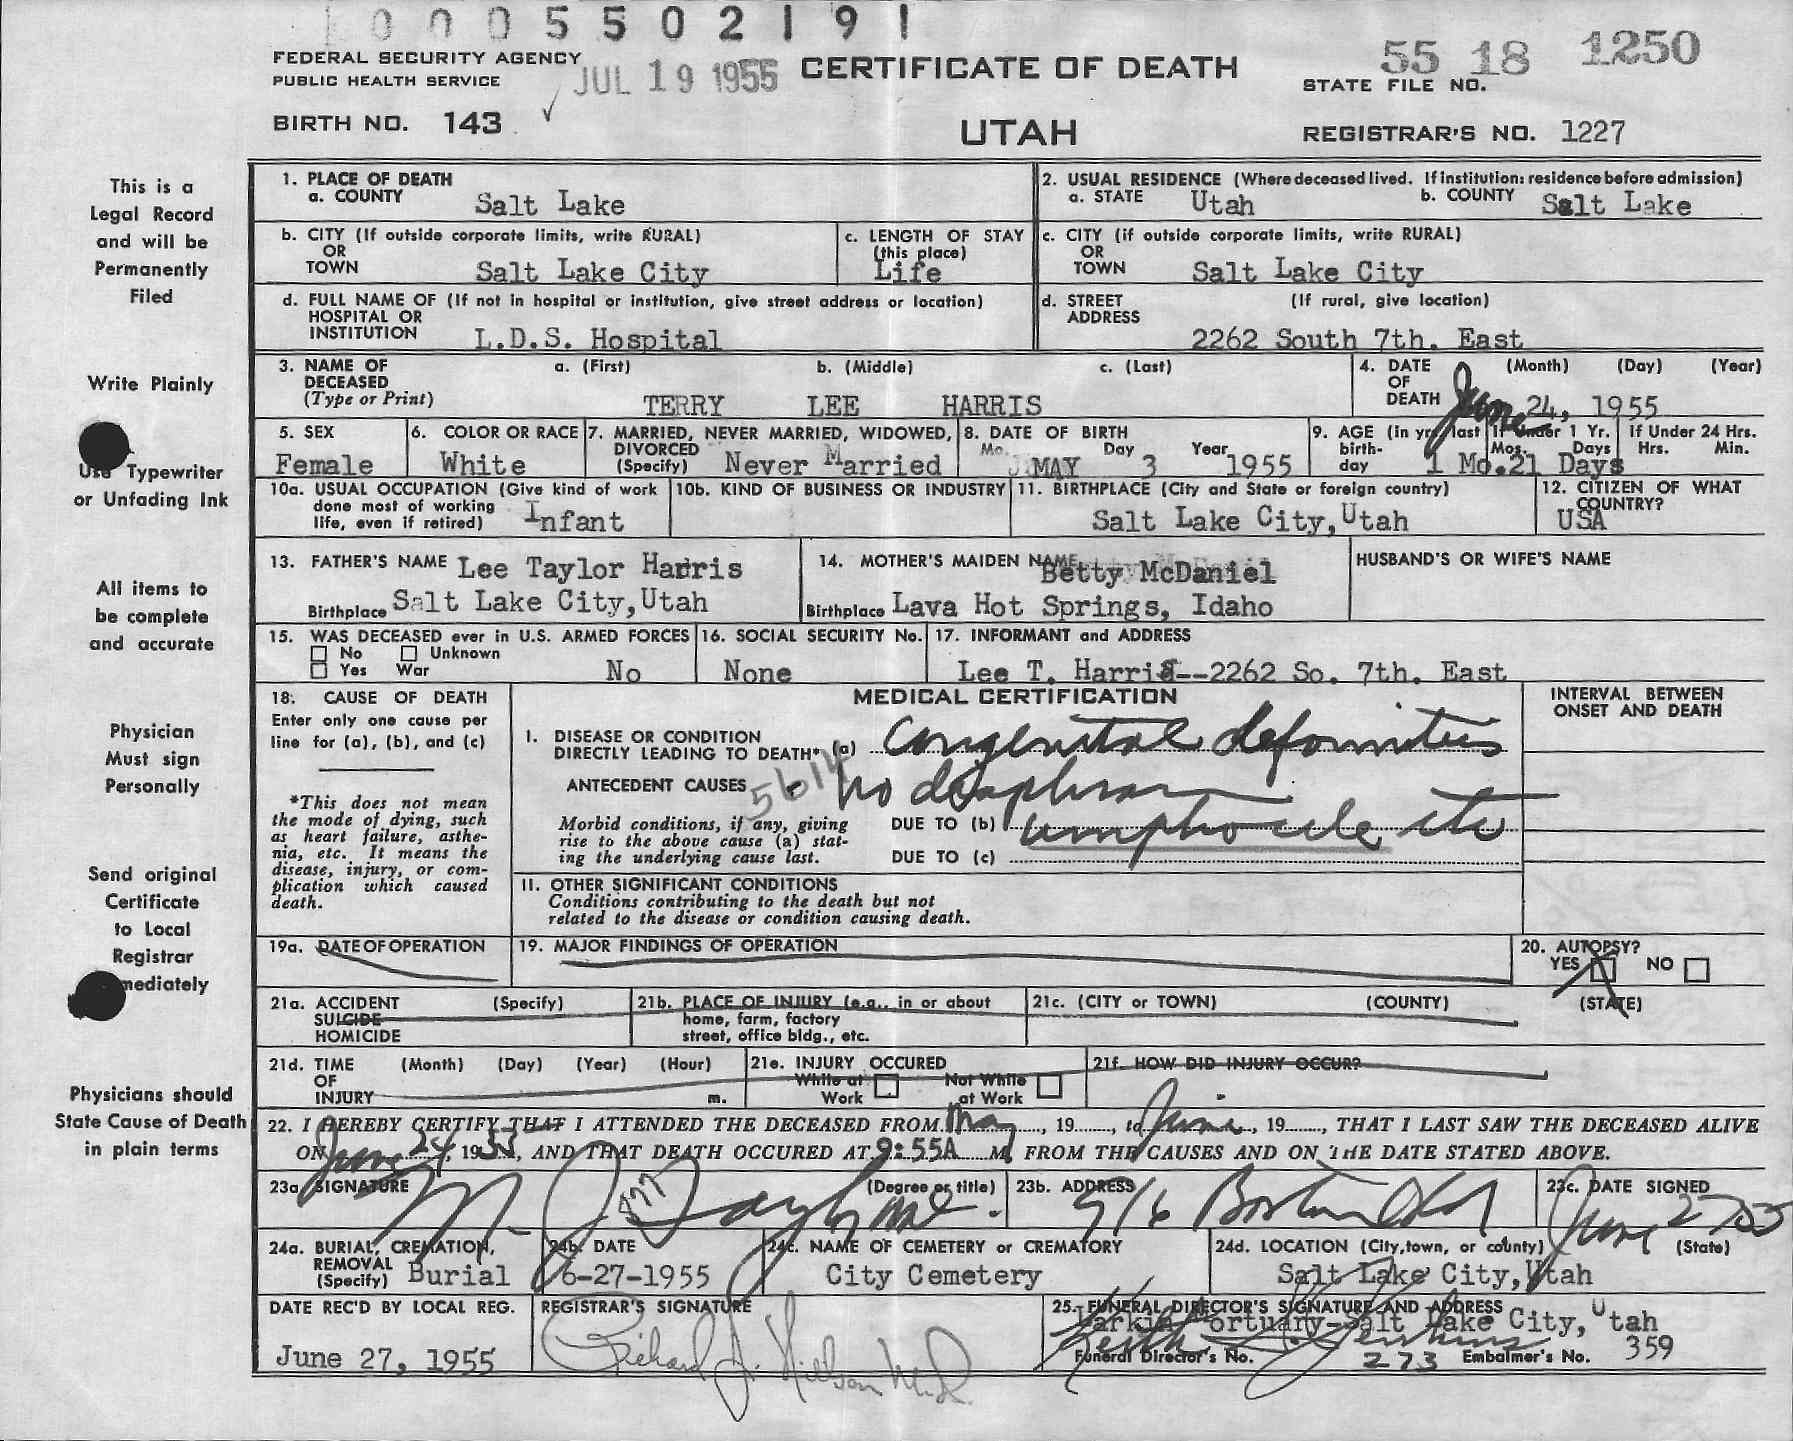 0005502191
FEDERAL SECURITY AGENCY
PUBLIC HEALTH SERVICE
JUL 19 1955
CERTIFICATE OF DEATH
55 18 1250
STATE FILE NO.
BIRTH NO. 143
UTAH
REGISTRAR'S NO. 1227
This is a
Legal Record
and will be
Permanently
Filed
Write Plainly
Use Typewriter
or Unfading Ink
All items to
be complete
and accurate
Physician
Must sign
Personally
Send original
Certificate
to Local
Registrar
mediately
Physicians should
State Cause of Death
in plain terms
1. PLACE OF DEATH
a. COUNTY Salt Lake
2. USUAL RESIDENCE (Where deceased lived. If institution: residence before admission)
a. STATE Utah b. COUNTY Salt Lake
b. CITY (If outside corporate limits, write RURAL)
OR
TOWN Salt Lake City
c. LENGTH OF STAY
(this place)
Life
c. CITY (if outside corporate limits, write RURAL)
OR
TOWN Salt Lake City
d. FULL NAME OF (If not in hospital or institution, give street address or location)
HOSPITAL OR
INSTITUTION L.D.S. Hospital
d. STREET (If rural, give location)
ADDRESS
2262 South 7th. East
3. NAME OF a. (First) b. (Middle) c. (Last)
DECEASED
(Type or Print) TERRY LEE HARRIS
4. DATE (Month) (Day) (Year)
OF
DEATH June 24, 1955
5. SEX
Female
6. COLOR OR RACE
White
7. MARRIED, NEVER MARRIED, WIDOWED,
DIVORCED
(Specify) Never Married
8. DATE OF BIRTH
Mo. Day Year
MAY 3 1955
9. AGE (in yrs last If Under 1 Yr. If Under 24 Hrs.
birth- Mos. Days Hrs. Min.
day 1 Mo. 21 Days
10a. USUAL OCCUPATION (Give kind of work
done most of working
life, even if retired) Infant
10b. KIND OF BUSINESS OR INDUSTRY
11. BIRTHPLACE (City and State or foreign country)
Salt Lake City, Utah
12. CITIZEN OF WHAT
COUNTRY?
USA
13. FATHER'S NAME Lee Taylor Harris
Birthplace Salt Lake City, Utah
14. MOTHER'S MAIDEN NAME Betty McDaniel
Birthplace Lava Hot Springs, Idaho
HUSBAND'S OR WIFE'S NAME
15. WAS DECEASED ever in U.S. ARMED FORCES
No Unknown
Yes War No
16. SOCIAL SECURITY No.
None
17. INFORMANT and ADDRESS
Lee T. Harris--2262 So. 7th. East
18. CAUSE OF DEATH
Enter only one cause per
line for (a), (b), and (c)
*This does not mean
the mode of dying, such
as heart failure, asthe-
nia, etc. It means the
disease, injury, or com-
plication which caused
death.
MEDICAL CERTIFICATION
I. DISEASE OR CONDITION
DIRECTLY LEADING TO DEATH* (a) Congenital deformities
ANTECEDENT CAUSES 5614 no diaphram
Morbid conditions, if any, giving
rise to the above cause (a) stat-
ing the underlying cause last.
DUE TO (b) umphocele etc
DUE TO (c)
II. OTHER SIGNIFICANT CONDITIONS
Conditions contributing to the death but not
related to the disease or condition causing death.
INTERVAL BETWEEN
ONSET AND DEATH
19a. DATE OF OPERATION
19. MAJOR FINDINGS OF OPERATION
20. AUTOPSY?
YES X NO
21a. ACCIDENT (Specify)
SUICIDE
HOMICIDE
21b. PLACE OF INJURY (e.g., in or about
home, farm, factory
street, office bldg., etc.
21c. (CITY or TOWN) (COUNTY) (STATE)
21d. TIME (Month) (Day) (Year) (Hour)
OF
INJURY m.
21e. INJURY OCCURED
While at Not While
Work at Work
21f. HOW DID INJURY OCCUR?
22. I HEREBY CERTIFY THAT I ATTENDED THE DECEASED FROM May, 19......, to June, 19......, THAT I LAST SAW THE DECEASED ALIVE
ON June 24, 1955, AND THAT DEATH OCCURED AT 9:55A M, FROM THE CAUSES AND ON THE DATE STATED ABOVE.
23a SIGNATURE (Degree or title)
23b. ADDRESS
916 Boston Bld
23c. DATE SIGNED
June 27 55
24a. BURIAL, CREMATION,
REMOVAL
(Specify) Burial
24b. DATE
6-27-1955
24c. NAME OF CEMETERY or CREMATORY
City Cemetery
24d. LOCATION (City, town, or county) (State)
Salt Lake City, Utah
DATE REC'D BY LOCAL REG.
June 27, 1955
REGISTRAR'S SIGNATURE
Richard J. Nilson M.D.
25. FUNERAL DIRECTOR'S SIGNATURE AND ADDRESS
Larkin Mortuary-Salt Lake City, Utah
Funeral Director's No. 273 Embalmer's No. 359